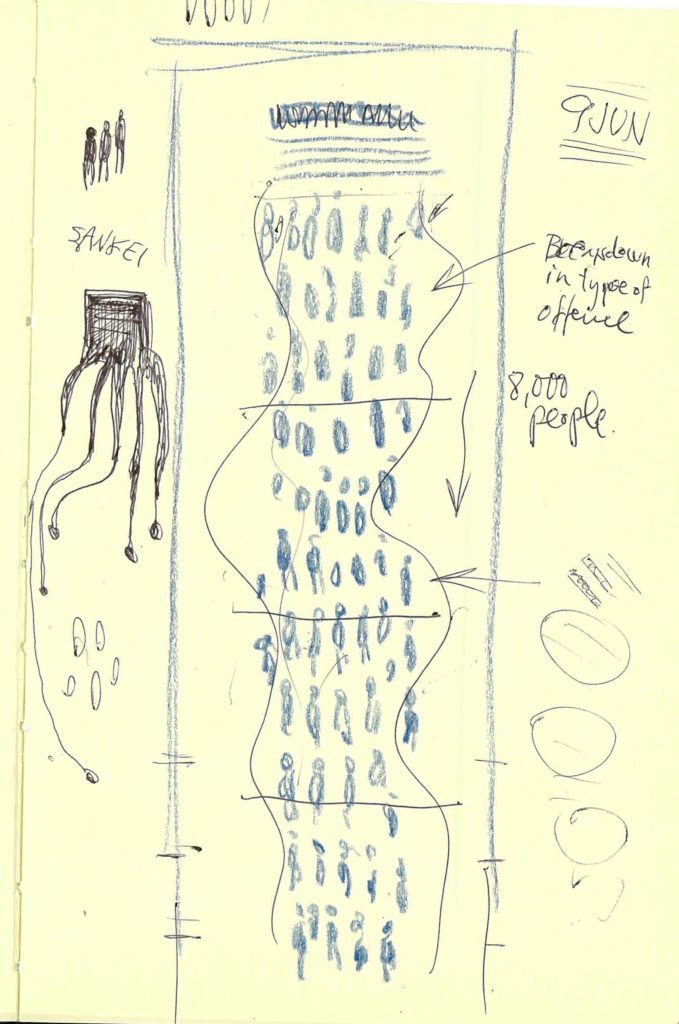 9 JUN
SANKEI
Breakdown
in type of
offence
8,000
people.